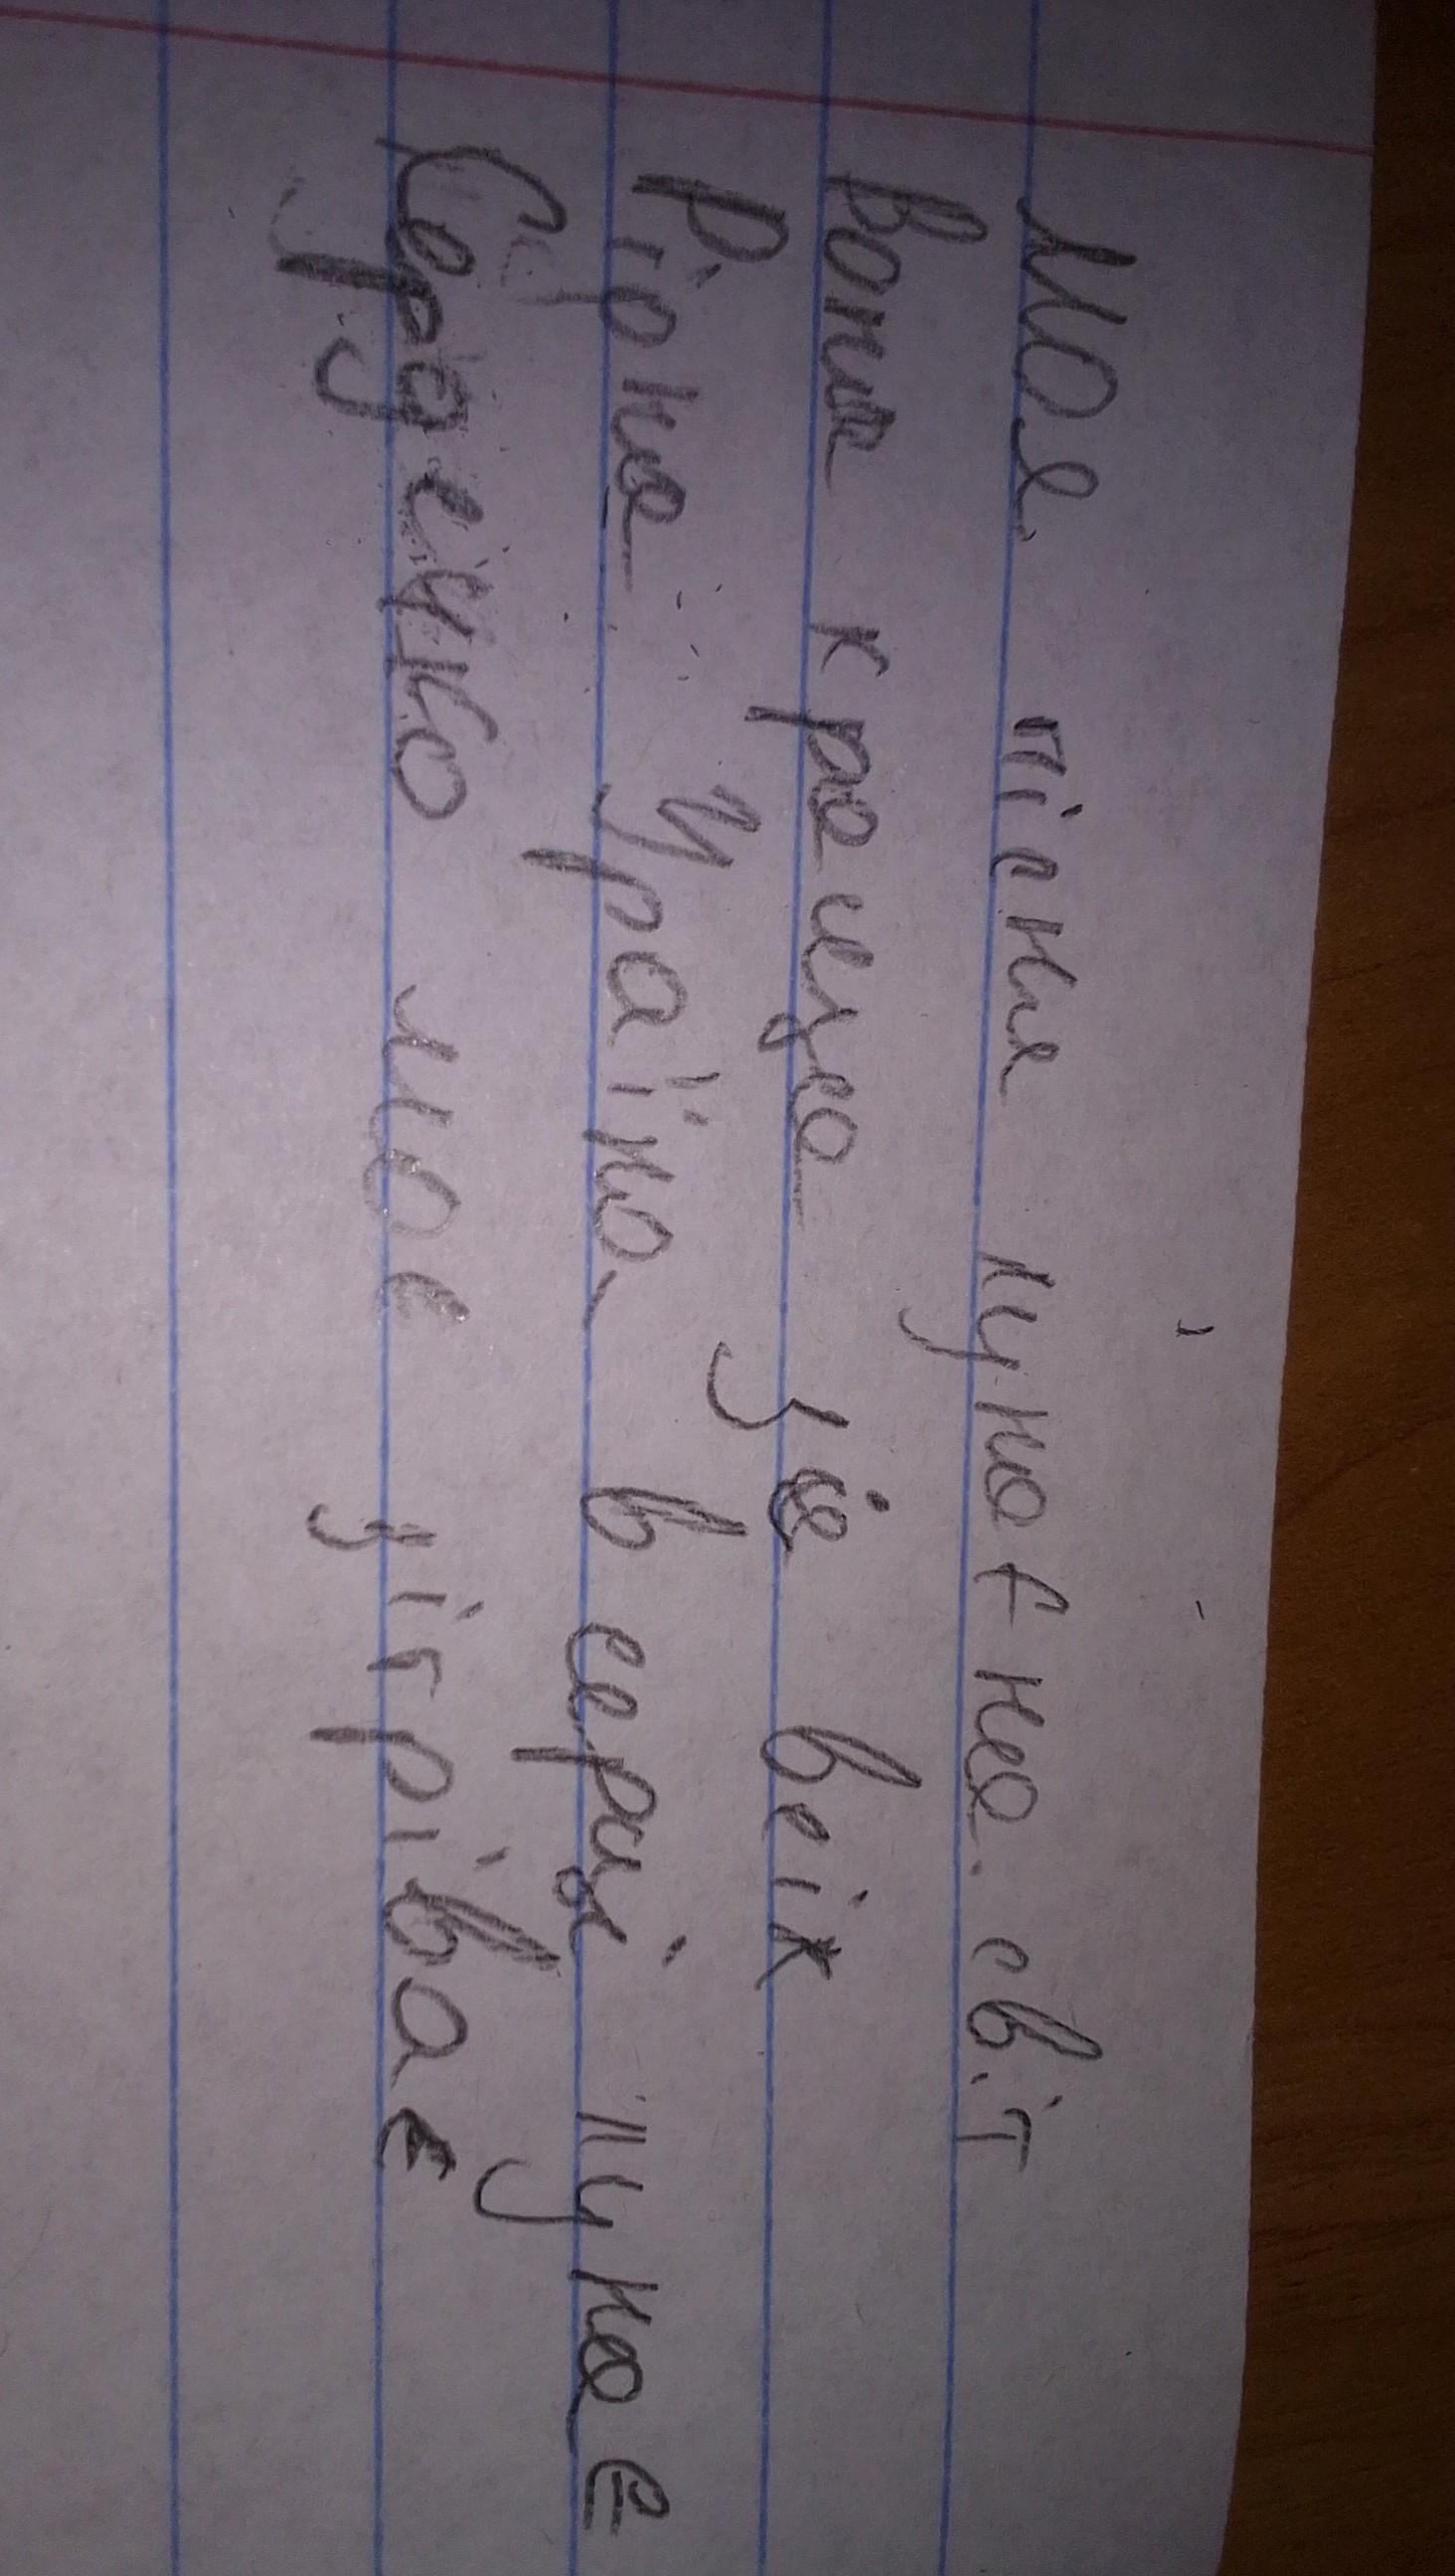 Моя пісня лунає на світ
Вона краща за всіх
Рідна Україна в серці лунає
Сердечко моє зігріває